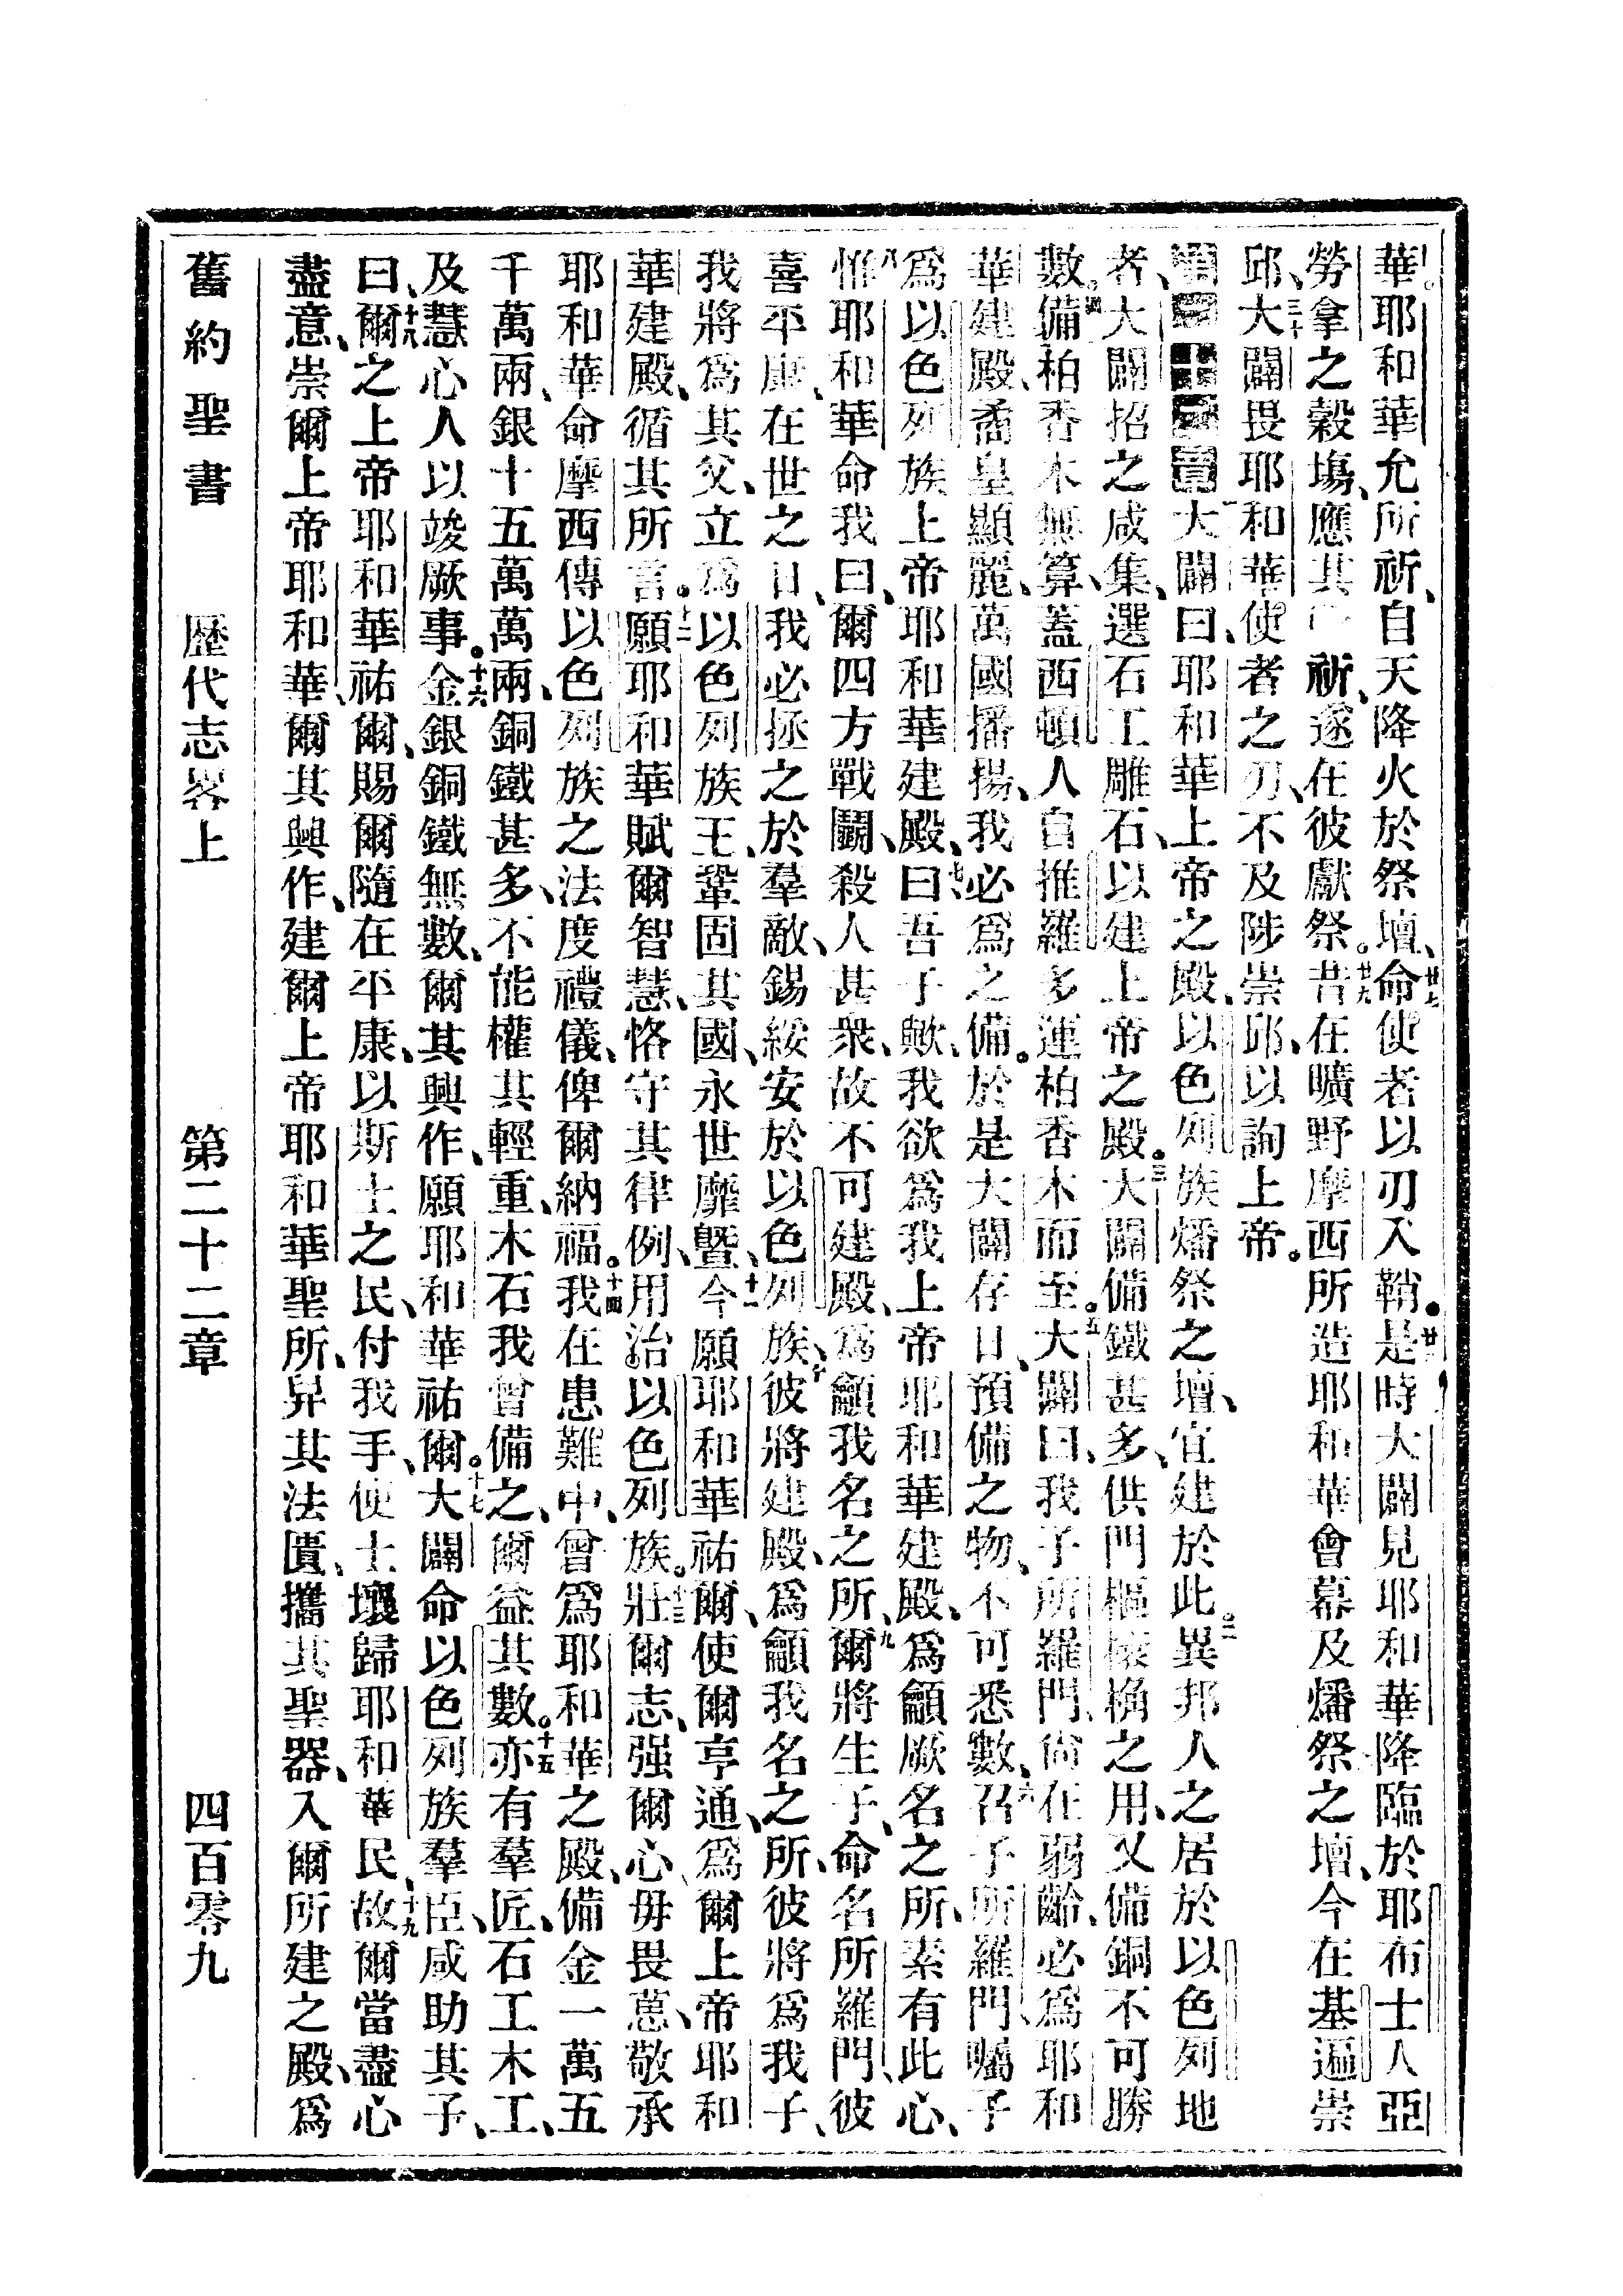 華。耶和華允所祈、自天降火於祭壇、廿七命使者以刃入鞘。廿八是時大闢見耶和華降臨於耶布士人亞
勞拿之穀塲、應其祈、遂在彼獻祭。廿九昔在曠野摩西所造耶和華會幕及燔祭之壇、今在基遍崇
邱、三十大闢畏耶和華使者之刃、不及陟崇邱、以詢上帝。
第二十二章大闢曰、耶和華上帝之殿、以色列族燔祭之壇、宜建於此。二異邦人之居於以色列地
者、大闢招之咸集、選石工雕石、以建上帝之殿。三大闢備鐵甚多、供門樞榱桷之用、又備銅不可勝
數。四備柏香木無算、蓋西頓人自推羅多運柏香木而至。五大闢曰、我子所羅門、尙在弱齡、必爲耶和
華建殿、矞皇顯麗、萬國播揚、我必爲之備。於是大闢存日、預備之物、不可悉數、六召子所羅門、囑子
爲以色列族上帝耶和華建殿、七曰吾子歟、我欲爲我上帝耶和華建殿、爲籲厥名之所、素有此心、
八惟耶和華命我曰、爾四方戰鬬、殺人甚衆、故不可建殿、爲籲我名之所、九爾將生子、命名所羅門、彼
喜平康、在世之日、我必拯之於羣敵、錫綏安於以色列族、十彼將建殿、爲籲我名之所、彼將爲我子、
我將爲其父、立爲以色列族王、鞏固其國、永世靡曁、十一今願耶和華祐爾、使爾亨通、爲爾上帝耶和
華建殿、循其所言。十二願耶和華賦爾智慧、恪守其律例、用治以色列族。十三壯爾志、强爾心、毋畏葸、敬承
耶和華命摩西傳以色列族之法度禮儀、俾爾納福。十四我在患難中、曾爲耶和華之殿、備金一萬五
千萬兩、銀十五萬萬兩、銅鐵甚多、不能權其輕重、木石我曾備之、爾益其數。十五亦有羣匠、石工木工、
及慧心人以竣厥事。十六金銀銅鐵無數、爾其興作、願耶和華祐爾。十七大闢命以色列族羣臣、咸助其子、
曰、十八爾之上帝耶和華祐爾、賜爾隨在平康、以斯土之民、付我手、使土壤歸耶和華民、十九故爾當盡心
盡意、崇爾上帝耶和華、爾其興作、建爾上帝耶和華聖所、舁其法匱、攜其聖器、入爾所建之殿、爲
舊約聖書　歷代志畧上　第二十二章　四百零九